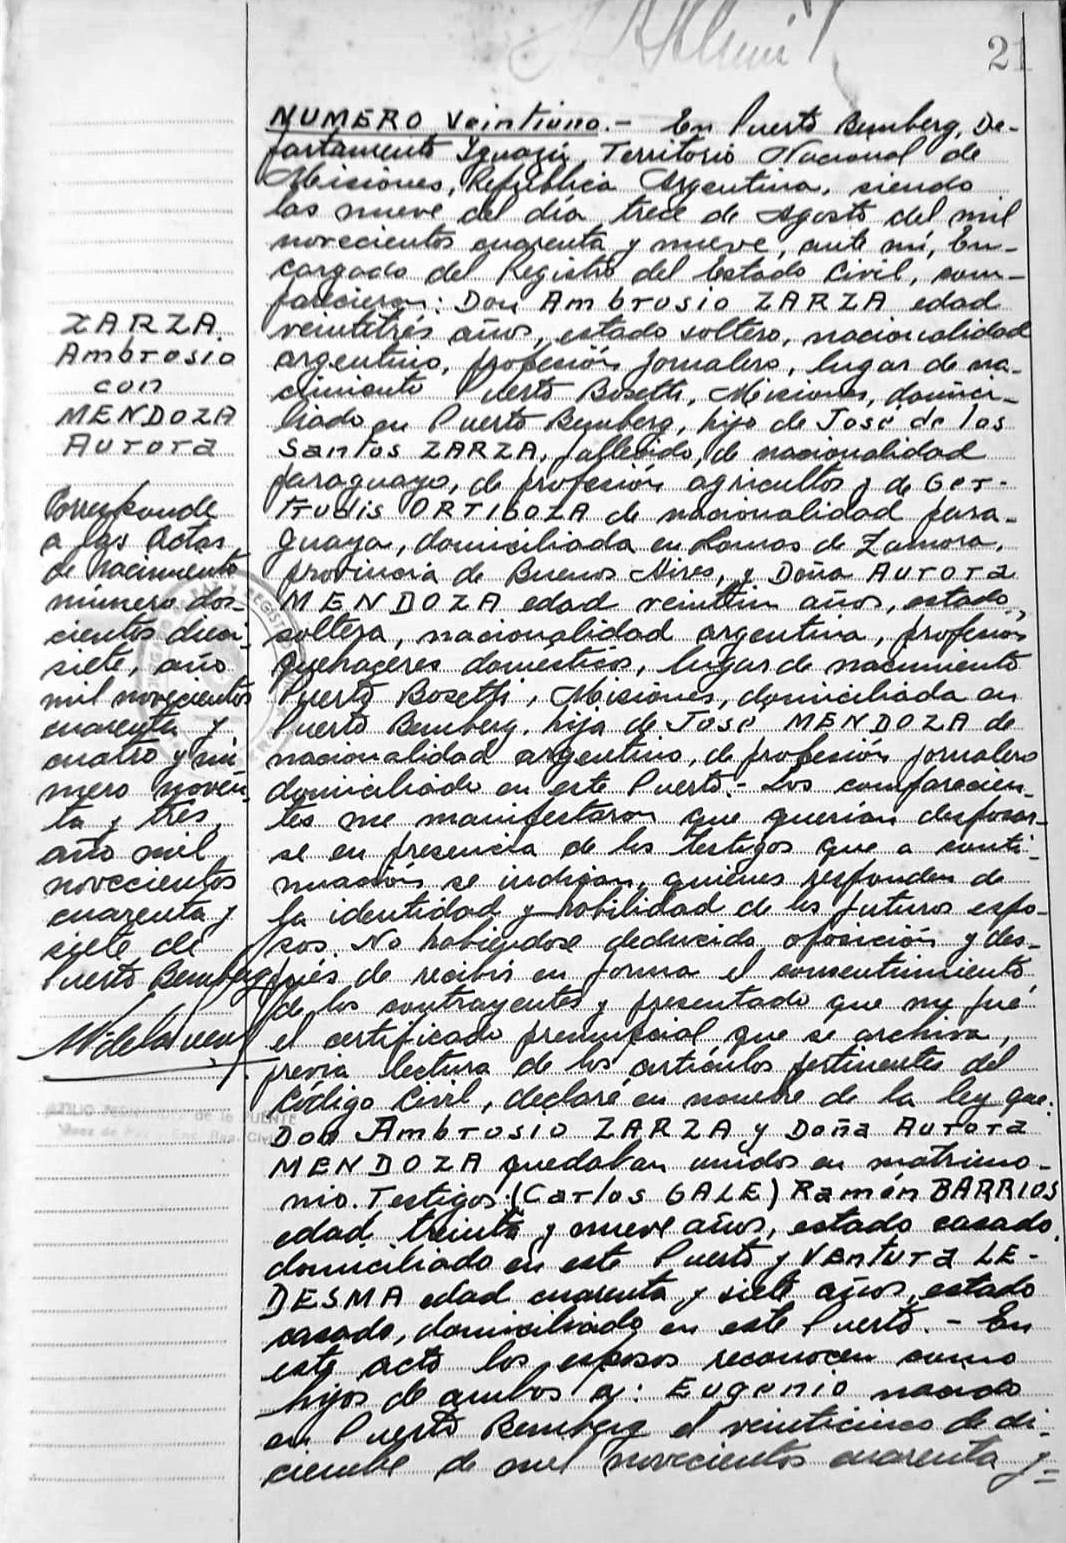 21
NUMERO Veintiuno.- En Puerto Bemberg, De-
partamento Iguazú, Territorio Nacional de
Misiones, República Argentina, siendo
las nueve del día trece de Agosto del mil
novecientos cuarenta y nueve, ante mí, En-
cargado del Registro del Estado Civil, com-
parecieron: Don Ambrosio ZARZA edad
veintitrés años, estado soltero, nacionalidad
argentino, profesión jornalero, lugar de na-
cimiento Puerto Bosetti, Misiones, domici-
liado en Puerto Bemberg, hijo de José de los
Santos ZARZA, fallecido, de nacionalidad
paraguayo, de profesión agricultor y de Ger-
trudis ORTIGOZA de nacionalidad para-
guaya, domiciliada en Lomas de Zamora,
provincia de Buenos Aires, y Doña Aurora
MENDOZA edad veintiun años, estado
soltera, nacionalidad argentina, profesión
quehaceres domésticos, lugar de nacimiento
Puerto Bosetti, Misiones, domiciliada en
Puerto Bemberg, hija de José MENDOZA de
nacionalidad argentino, de profesión jornalero
domiciliado en este Puerto.- Los comparecien-
tes me manifestaron que querían desposar-
se en presencia de los testigos que a conti-
nuación se indican, quienes responden de
la identidad y habilidad de los futuros espo-
sos. No habiéndose deducido oposición y des-
pués de recibir en forma el consentimiento
de los contrayentes y presentado que me fué
el certificado prenupcial que se archiva,
previa lectura de los artículos pertinentes del
Código Civil, declaré en nombre de la ley que:
Don Ambrosio ZARZA y Doña Aurora
MENDOZA quedaban unidos en matrimo-
nio. Testigos: (Carlos GALE) Ramón BARRIOS
edad treinta y nueve años, estado casado,
domiciliado en este Puerto y Ventura LE-
DESMA edad cuarenta y siete años, estado
casado, domiciliado en este Puerto.- En
este acto los esposos reconocen como
hijos de ambos a: Eugenio nacido
en Puerto Bemberg el veinticinco de di-
ciembre de mil novecientos cuarenta y=
ZARZA
Ambrosio
con
MENDOZA
Aurora
Corresponde
a las Actas
de nacimiento
número dos-
cientos dieci-
siete, año
mil novecientos
cuarenta y
cuatro y nú-
mero noven-
ta y tres,
año mil
novecientos
cuarenta y
siete de
Puerto Bemberg
de la PUENTE